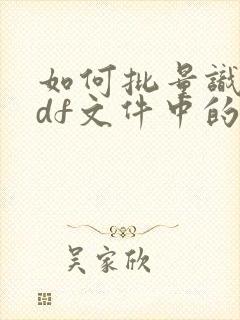 如何批量識
df文件中的
吴家欣